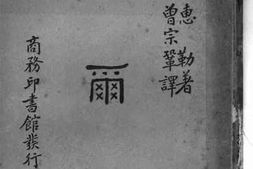 惠勒著
曾宗鞏譯
爾
商務印書館發行